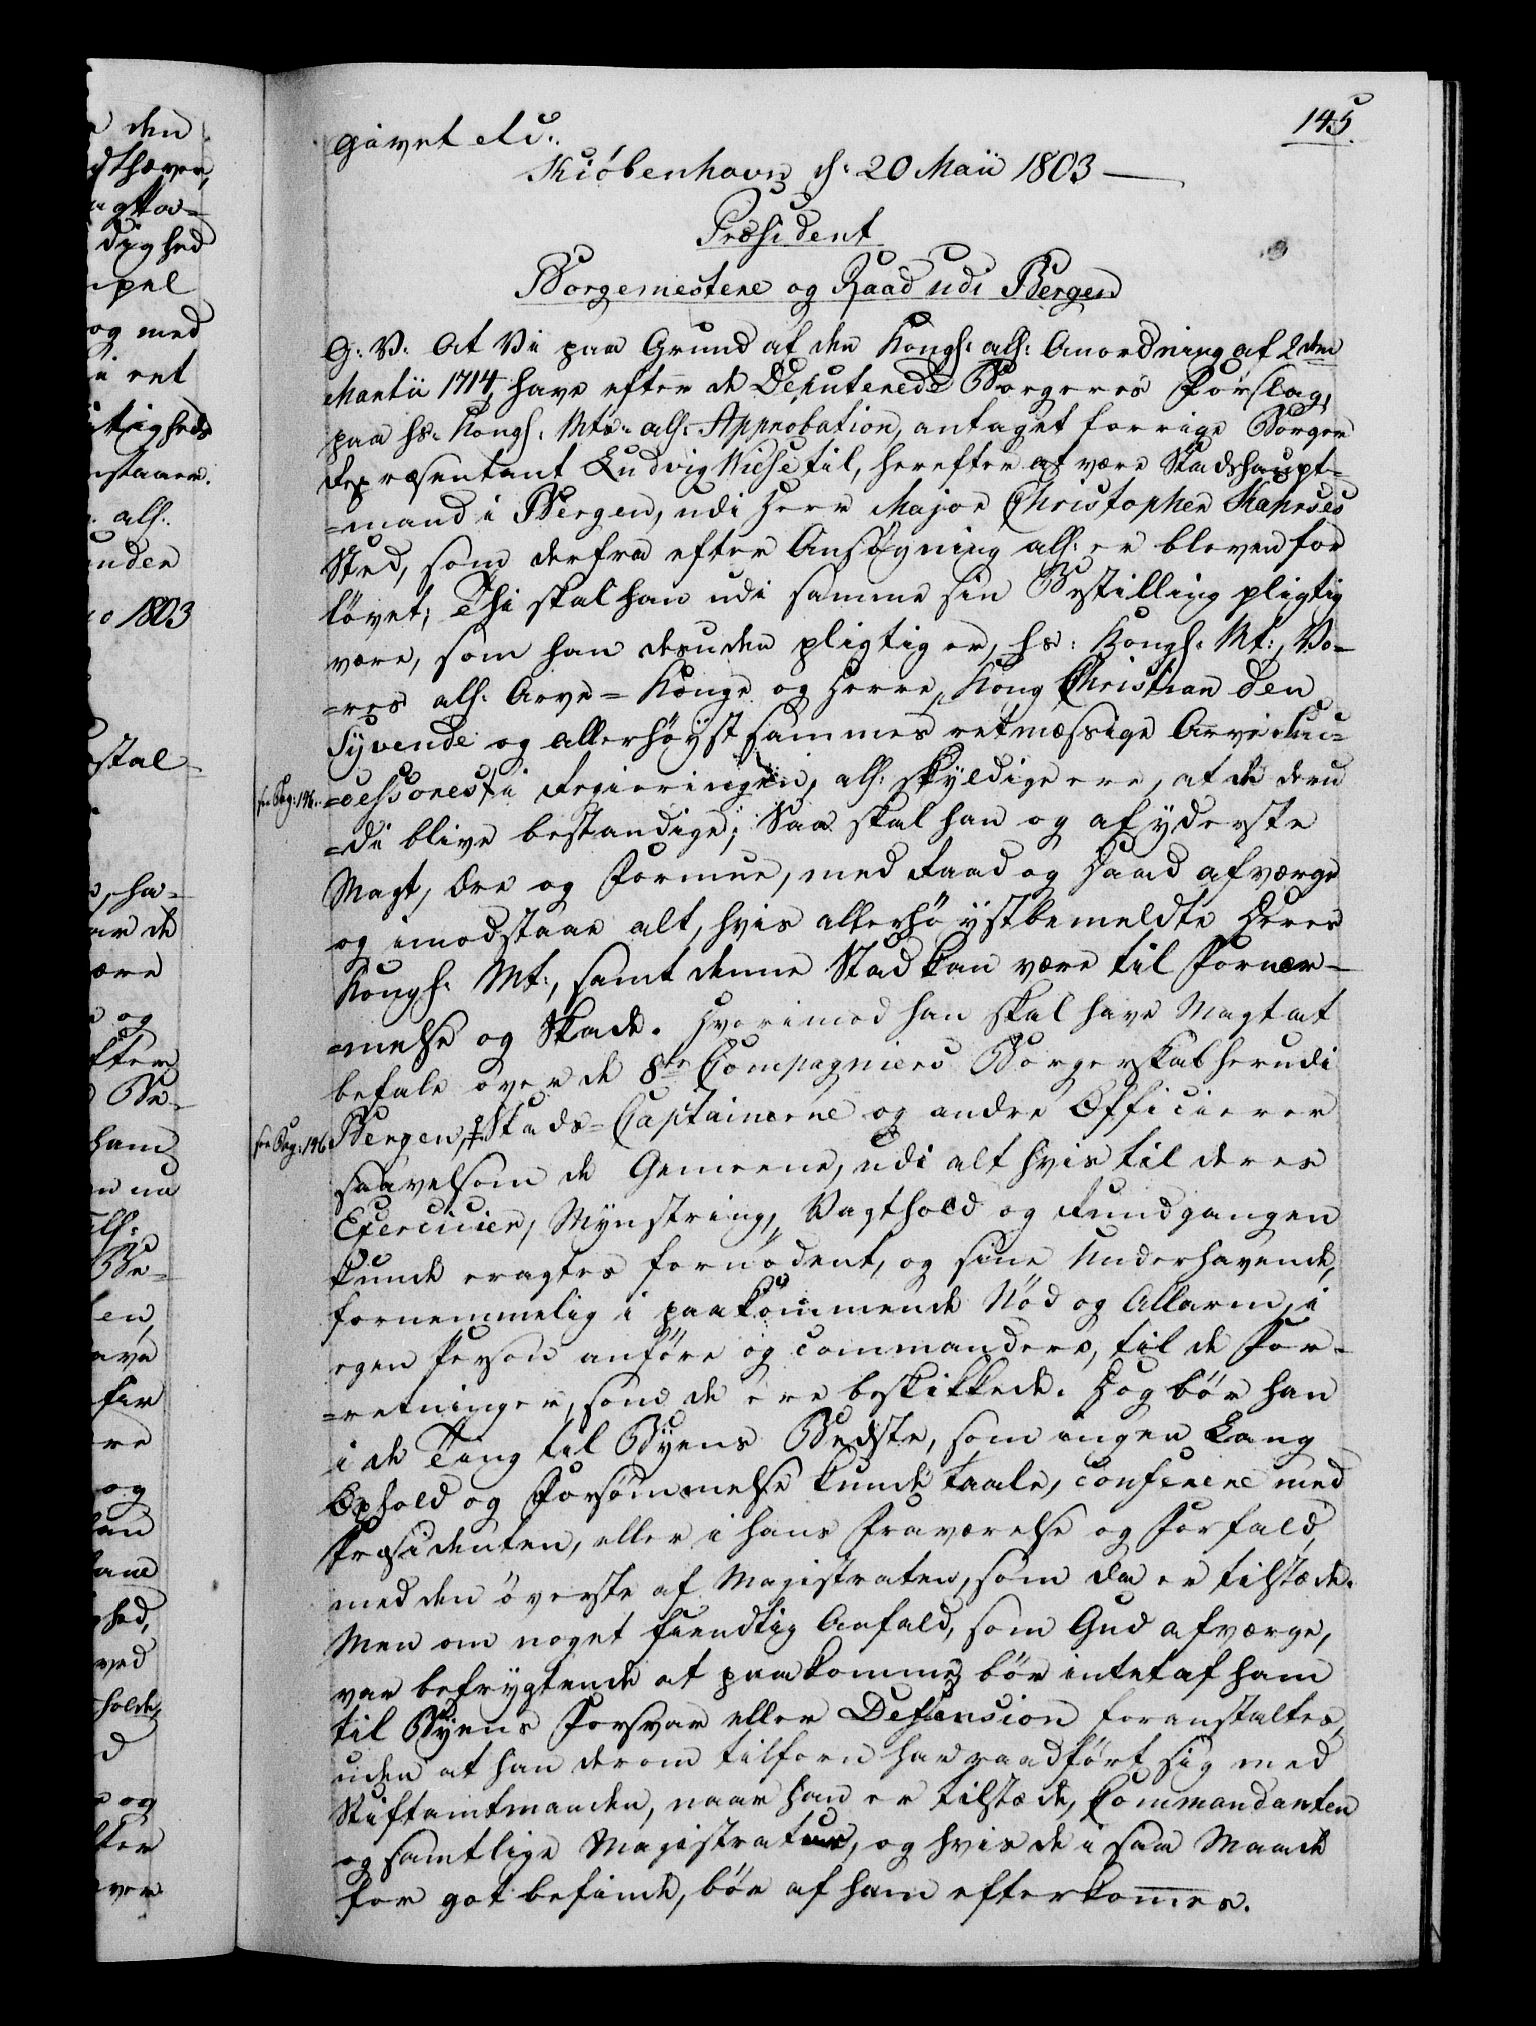 145
givet etc:
Kiöbenhavn d: 20 Maii 1803 —
Præsident
Borgemestere og Raad udi Bergen
G: V: At Vi paa Grund af den Kongl: allr: Anordning af 2den
Martii 1714, have efter de Deputerede Borgeres Forslag,
paa hs: Kongl: Mts: allr: Approbation, antaget forrige Borger
Repræsentant Ludvig Wiese til, herefter at være Stadshaupt-
=mand i Bergen, udi Herr Major Christopher Kahrses
Sted, som derfra efter Ansögning allr: er bleven for
lövet; Thi skal han udi samme sin Bestilling pligtig
være, som han desuden pligtig er, hs: Kongl: Mt:, Vo-
=res allr: Arve=Konge og Herre, Kong Christian den
Syvende og allerhöystsammes retmæssige Arve Suc=
see Pag: 146. =cessores i Regieringen, allr: skyldige ere, at de deru
=di blive bestandige; Saa skal han og af yderste
Magt, Ære og Formue, med Raad og Daad afværge
og imodstaae alt, hvis allerhöystbemeldte Deres
Kongl: Mt:, samt denne Stad kan være til Fornær-
=melse og Skade. Hvorimod han skal have Magt at
befale over de 8te Compagniers Borgerskab herudi
see Pag: 146 Bergen, Stads=Captainerne og andre Officierer
saavelsom de Gemeene, udi alt hvis til deres
Exercicier, Mynstring, Vagthold og Rundgangen
kunde eragtes fornödent, og sine Underhavende,
fornemmelig i paakommende Nöd og Allarm, i
egen Person anföre og commandere, til de For-
=retninger, som de ere beskikkede. Dog bör han
i de Ting til Byens Bedste, som ingen Lang
Ophold og Forsömmelse kunde taale, conferere med
Præsidenten, eller i hans Fraværelse og Forfald,
med den överste af Magistraten, som da er tilstæde.
Men om noget fiendtlig Anfald, som Gud afværge,
var befrygtende at paakomme, bör intet af ham
til Byens Forsvar eller Defension foranstaltes,
uden at han derom tilforn har raadfört sig med
Stiftamtmanden, naar han er tilstæde, Commandanten
og samtlige Magistraten, og hvis de i saa Maade
for got befinde, bör af ham efterkommes.